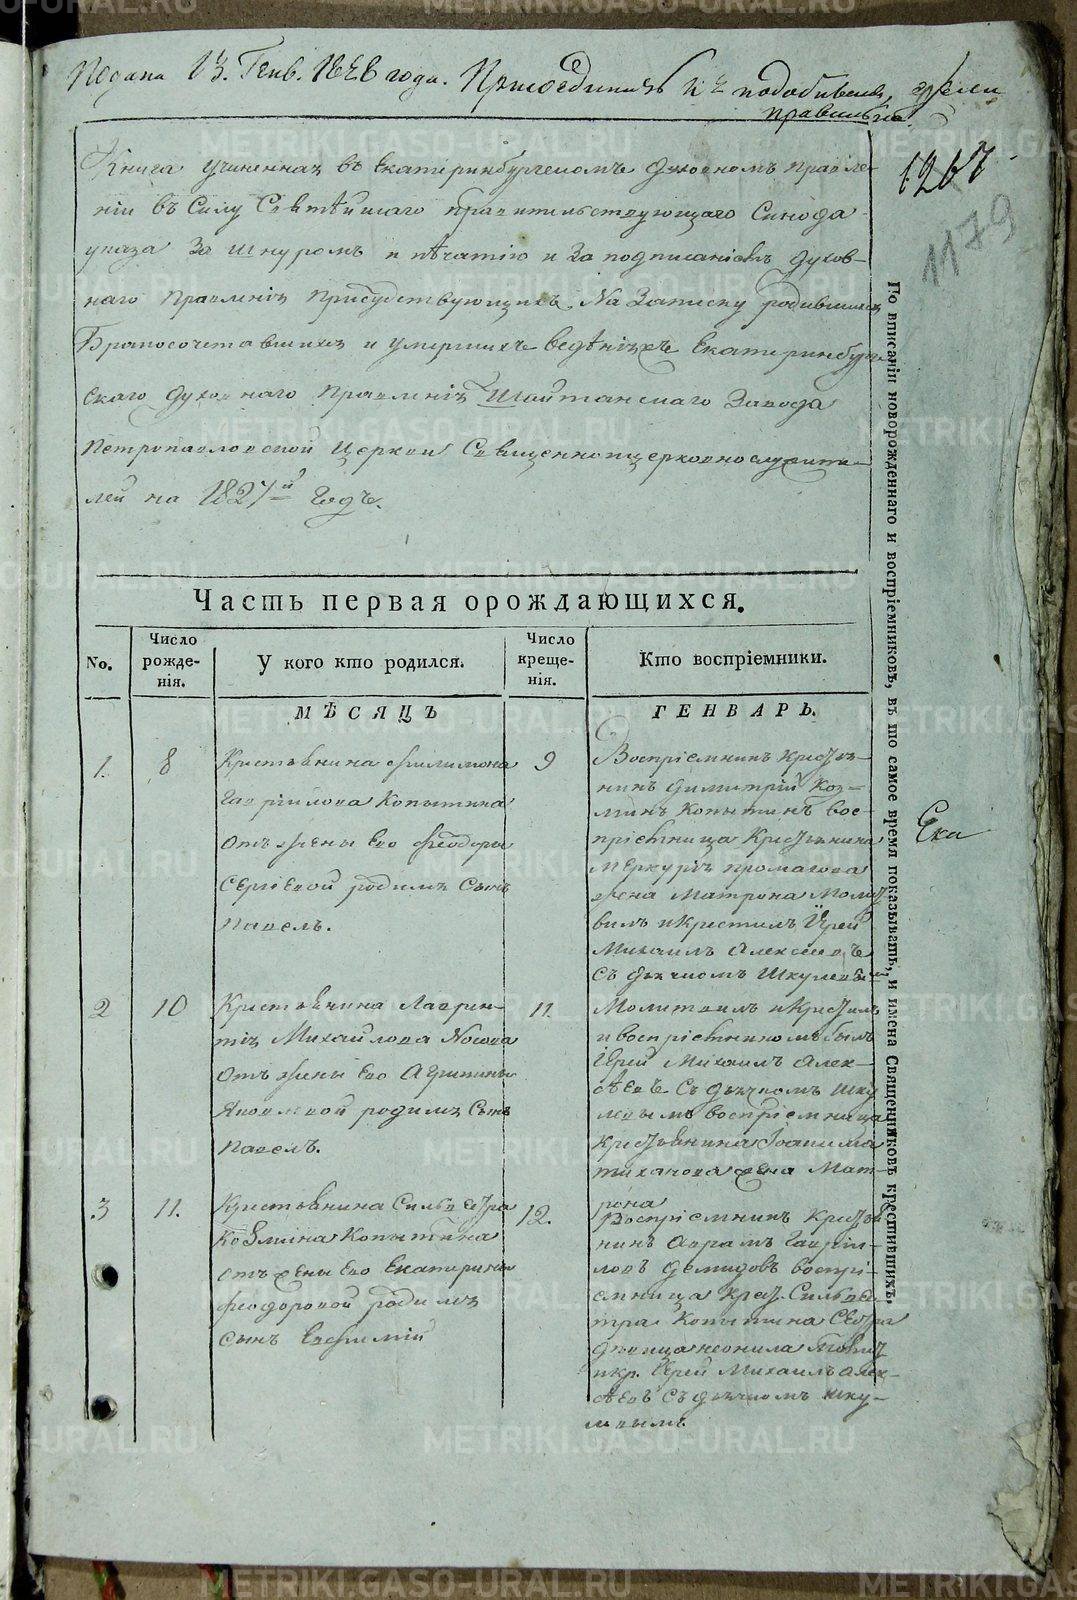 Подана 13. Генв. 1828 года. Присоединить къ подобнымъ, если
правильна.
1267
1179
Книга учиненная въ Екатеринбургскомъ духовномъ правле-
нiи въ Силу Святѣйшаго правительствующаго Синода
указа За шнуромъ и пѣчатiю и За подписанiемъ духов-
наго правленiя присудствующихъ. На Записку родившихся
Бракосочетавшихся и умершихъ ведѣнiя Екатеринбург-
скаго духовнаго правленiя Шайтанскаго Завода
Петропавловской Церкви Священноцерковнослужите-
лей на 1827й Годъ.
Часть первая орождающихся.
No.
Число рожде-нiя.
У кого кто родился.
Число креще-нiя.
Кто воспрiемники.
МѢСЯЦЪ
ГЕНВАРЬ.
1.
8
Крестьянина Филимона
Гаврiилова Копытина
отъ жены Его Феодоры
Сергiевой родился Сынъ
Павелъ.
9
Воспрiемникъ Кресть-
нинъ Димитрiй Коз-
минъ Копытинъ вос-
прiемница Крестьянина
Меркурiя
жена Матрона Молит-
вилъ и Крестилъ Iерей
Михаилъ Алексѣевъ
съ дьячкомъ Шкулевымъ
2
10
Крестьянина Лаврен-
тiя Михайлова Носова
отъ жены Его Агрипины
Яковлевой родился Сынъ
Павелъ.
11.
Молитвилъ и Крестилъ
и воспрiемникомъ былъ
Iерей Михаилъ Алек-
сѣевъ Съ дьячкомъ Шку
левымъ воспрiемница
Крестьянина Iоакима
Тиханова жена Мат-
рона
3
11.
Крестьянина Сильвестра
Козмина Копытина
отъ жены Его Екатерины
Феодоровой родился
сынъ Евфимiй
12.
Воспрiемникъ Крестья
нинъ Аврамъ Гаврiи-
ловъ Демидовъ воспрi-
емница Крест. Сильвес-
тра Копытина Сестра
дѣвица неонила Молит.
икр. Iерей Михаилъ Алек-
сѣевъ Съ дьячкомъ Шку-
левымъ
По вписанiи новорожденнаго и воспрiемниковъ, въ то самое время показывать, и имена Священниковъ крестившихъ.
Ека
METRIKI.GASO-URAL.RU